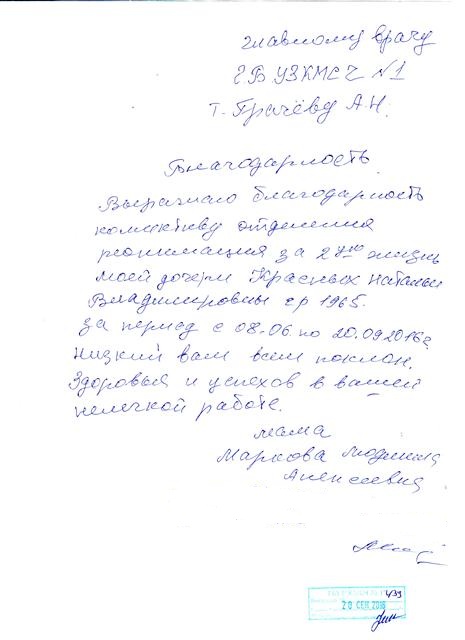 Главному врачу
ГБУЗ КМСЧ №1
т. Грачёву А.Н.
Благодарность
Выражаю благодарность
коллективу отделения
реанимация за 2ую жизнь
моей дочери Красных Натальи
Владимировны гр 1965.
за период с 08.06 по 20.09.2016г
Низкий вам всем поклон.
Здоровья и успехов в вашей
нелегкой работе.
мама
Маркова Людмила
Алексеевна
20 СЕН 2016